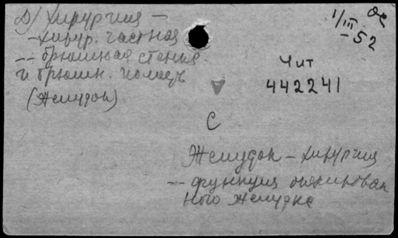 Д) Хирургия –
– хирур. частная
-- брюшная стенка
и брюшн. полость
(Желудок)
1/III – 52
Чит
442241
С
Желудок – хирургия
-- функция оперирован
ного желудка